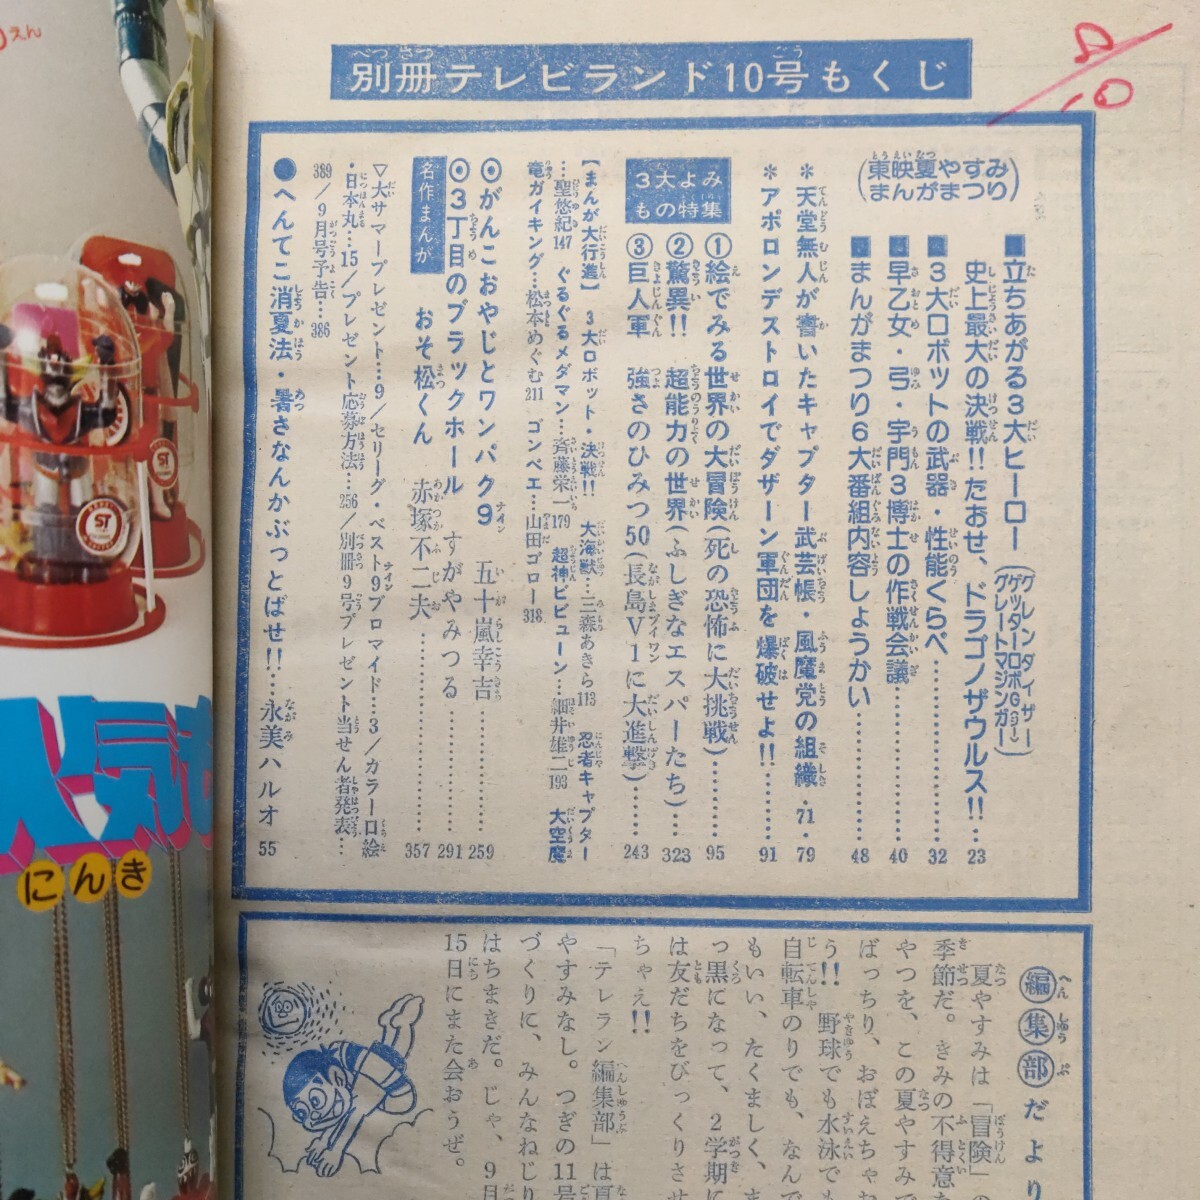 別冊テレビランド10号もくじ
(東映夏やすみまんがまつり)
■立ちあがる3大ヒーロー(グレンダイザー ゲッターロボG グレートマジンガー)
史上最大の決戦!!たおせ、ドラゴノザウルス!!…23
■3大ロボットの武器・性能くらべ………32
■早乙女・弓・宇門3博士の作戦会議………40
■まんがまつり6大番組内容しょうかい………48
*天堂無人が書いたキャプター武芸帳・風魔党の組織・71・79
*アポロンデストロイでダザーン軍団を爆破せよ!!…91
3大よみもの特集
①絵でみる世界の大冒険(死の恐怖に大挑戦)………95
②驚異!! 超能力の世界(ふしぎなエスパーたち)…323
③巨人軍 強さのひみつ50(長島V1に大進撃)…243
【まんが大行進】 3大ロボット・決戦!! 大海獣…三森あきら113 忍者キャプター
…聖悠紀147 ぐるぐるメダマン…斉藤栄一179 超神ビビューン…細井雄二193 大空魔
竜ガイキング…松本めぐむ211 ゴンベエ…山田ゴロー318
◎がんこおやじとワンパク9 五十嵐幸吉………259
◎3丁目のブラックホール すがやみつる………291
名作まんが おそ松くん 赤塚不二夫………357
▽大サマープレゼント…9/セリーグ・ベスト9ブロマイド…3/カラー口絵
・日本丸…15/プレゼント応募方法…256/別冊9号プレゼント当せん者発表…
389/9月号予告…386
●へんてこ消夏法・暑さなんかぶっとばせ!!…永美ハルオ 55
編集部だより
夏やすみは「冒険」の
季節だ。きみの不得意な
やつを、この夏やすみで
ばっちり、おぼえちゃお
う!! 野球でも水泳でも
自転車のりでも、なんで
もいい、たくましく、ま
っ黒になって、2学期に
は友だちをびっくりさせ
ちゃえ!!
「テレラン編集部」は夏
やすみなし。つぎの11号
づくりに、みんなねじり
はちまきだ。じゃ、9月
15日にまた会おうぜ。
えん
にんき
人気
ST
ST